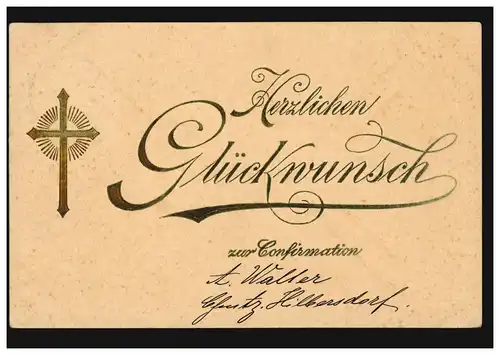 Herzlichen
Glückwunsch
zur Confirmation
A. Walter
Chmtz. Hilbersdorf.